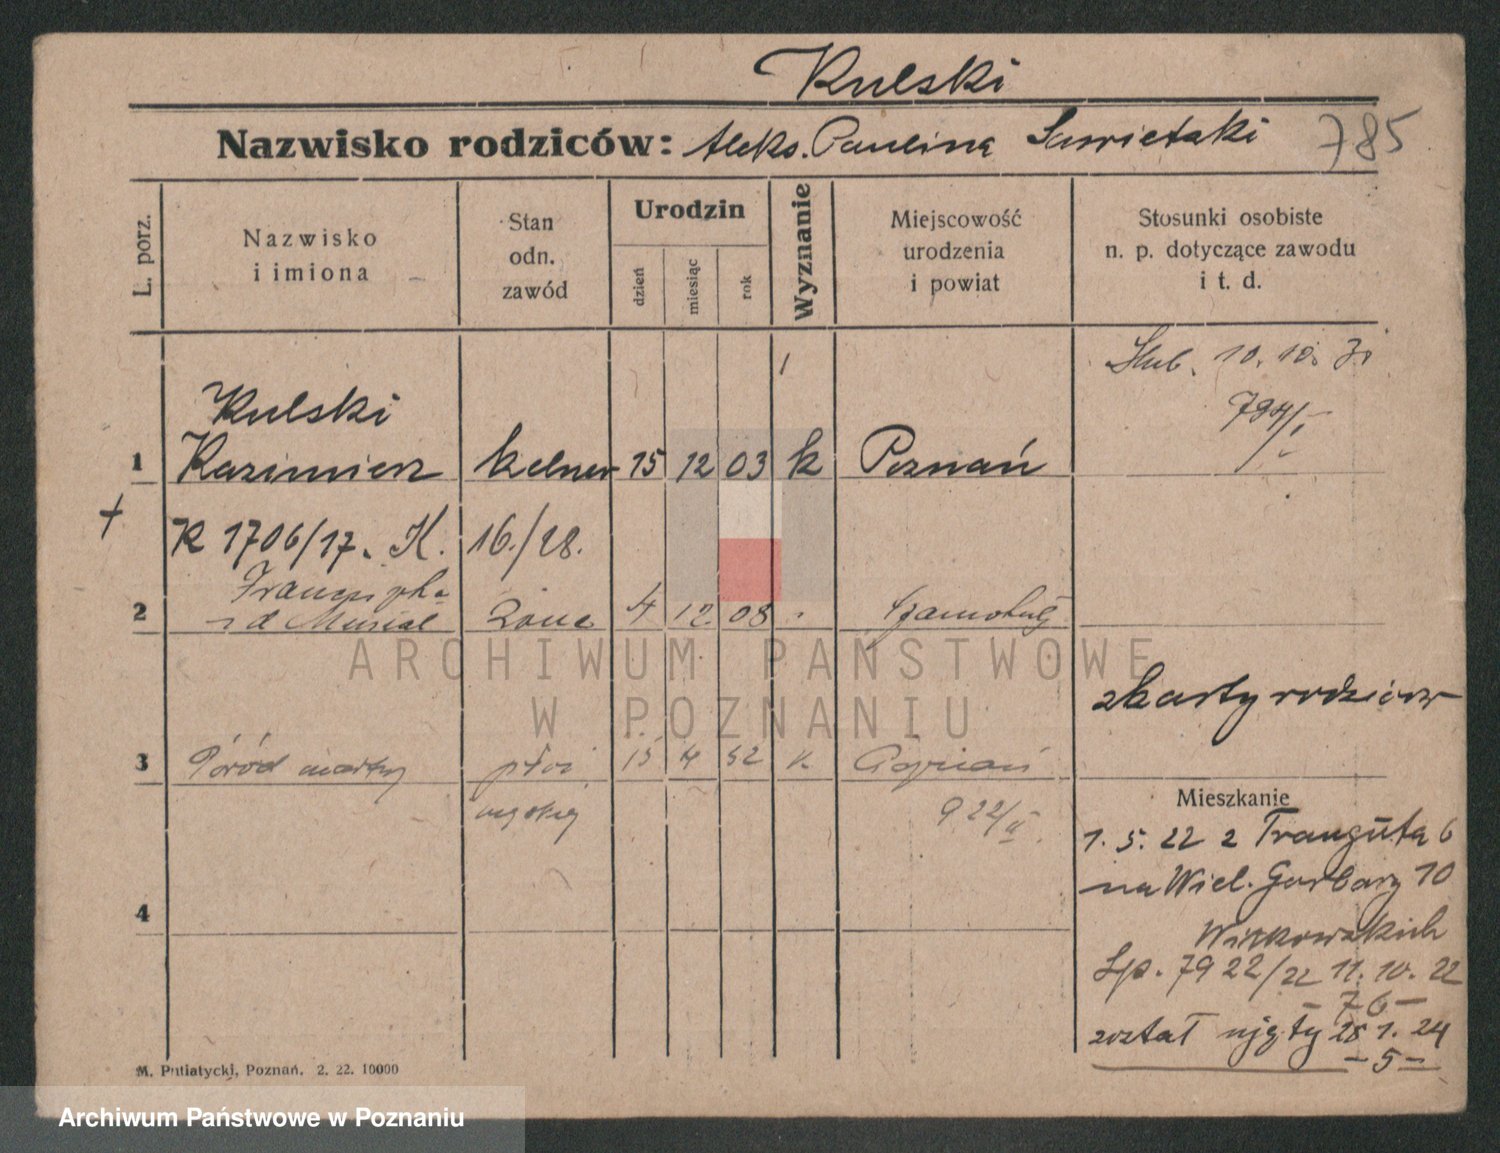 Kulski
Nazwisko rodziców: Aleks. Paulina 785
L. porz.
Nazwisko
i imiona
Stan
odn.
zawód
Urodzin
dzień
miesiąc
rok
Wyznanie
Miejscowość
urodzenia
i powiat
Stosunki osobiste
n. p. dotyczące zawodu
i t. d.
Kulski
1 Kazimierz kelner 15 12 03 k Poznań
10. 10. 30
K 1706/17. K. 16./28.
2 żona 4 12 08 Szamotuły
z karty rodziców
3 Poród martwy płci 15 4 32 k Poznań
męskiej 922/II
4
Mieszkanie
1. 5. 22 z Trauguta 6
na Wiel. Garbary 10
Sp. 7922/22 11. 10. 22
- 76 -
został ujęty 28 1. 24
- 5 -
M. Putiatycki, Poznań. 2. 22. 10000
ARCHIWUM PAŃSTWOWE
W POZNANIU
Archiwum Państwowe w Poznaniu